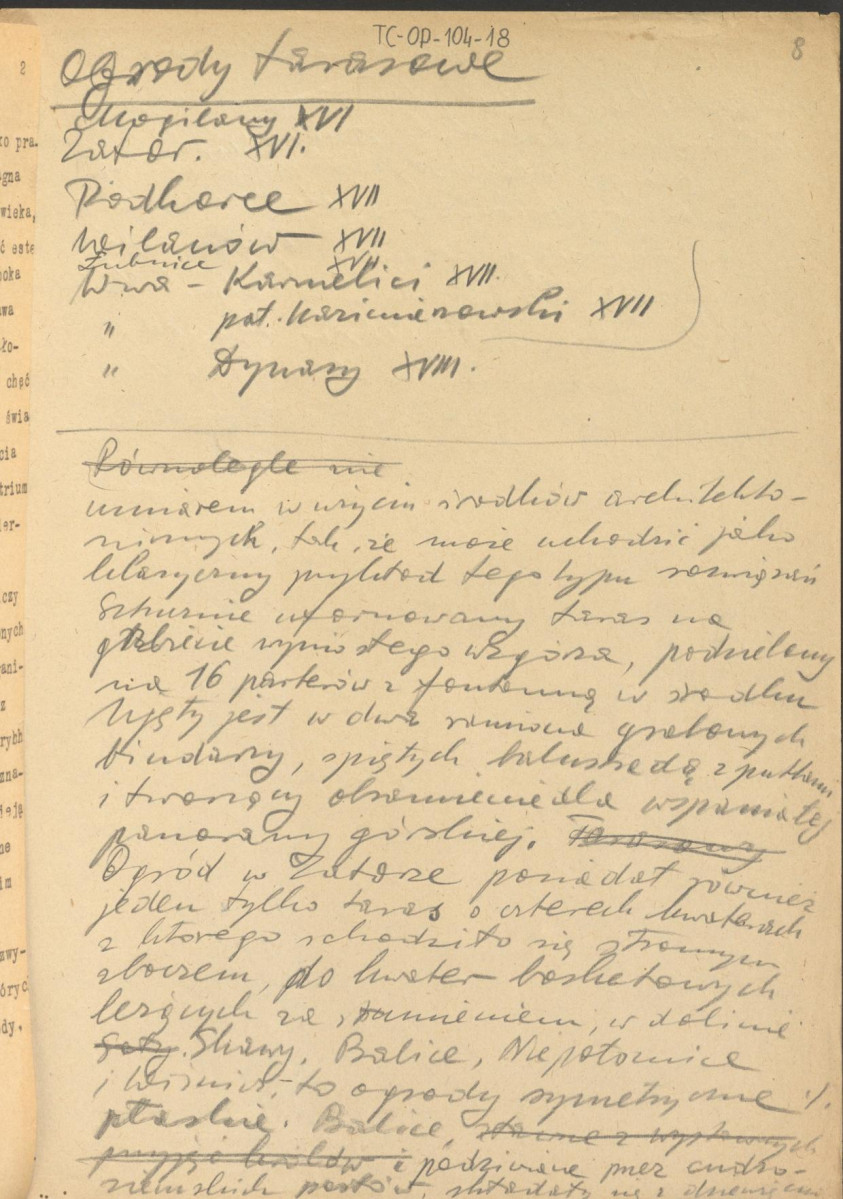 TC-OP-104-18
8
Ogrody tarasowe
Mogilany XVI
Zator. XVI.
Podhorce XVII
Wilanów XVII
Łubnice XVII
Wwa - Karmelici XVII.
" pał. Kazimierzowski XVII
" Dynasy XVIII.
Równolegle nie
umiarem w użyciu środków architekto-
nicznych, tak, że może uchodzić jako
klasyczny przykład tego typu rozwiązań
Sztucznie uformowany taras na
grzbiecie wyniosłego wzgórza, podzielony
na 16 parterów z fontanną w środku
Ujęty jest w dwa ramiona grabowych
bindarzy, spiętych balustradą z puttami
i tworzący obramienie dla wspaniałej
panoramy górskiej. Tarasowy
Ogród w Zatorze posiadał również
jeden tylko taras o czterech kwaterach
z którego schodziło się stromym
zboczem, do kwater boskietowych
leżących za strumieniem, w dolinie
Skawy. Balice, Niepołomice
i Wiśnicz, to ogrody symetryczne
płaskie. Balice, sławne z wystawnych
przyjęć królów i podziwiane przez cudzo-
ziemskich posłów, składały się z
2
ko pra.
agna
wieka,
ć este
oka
wa
ło-
chęć
świa
cia
trium
er-
czy
nych
ani-
z
rybh
zna-
ieję
ne
im
wy-
óryc
dy.